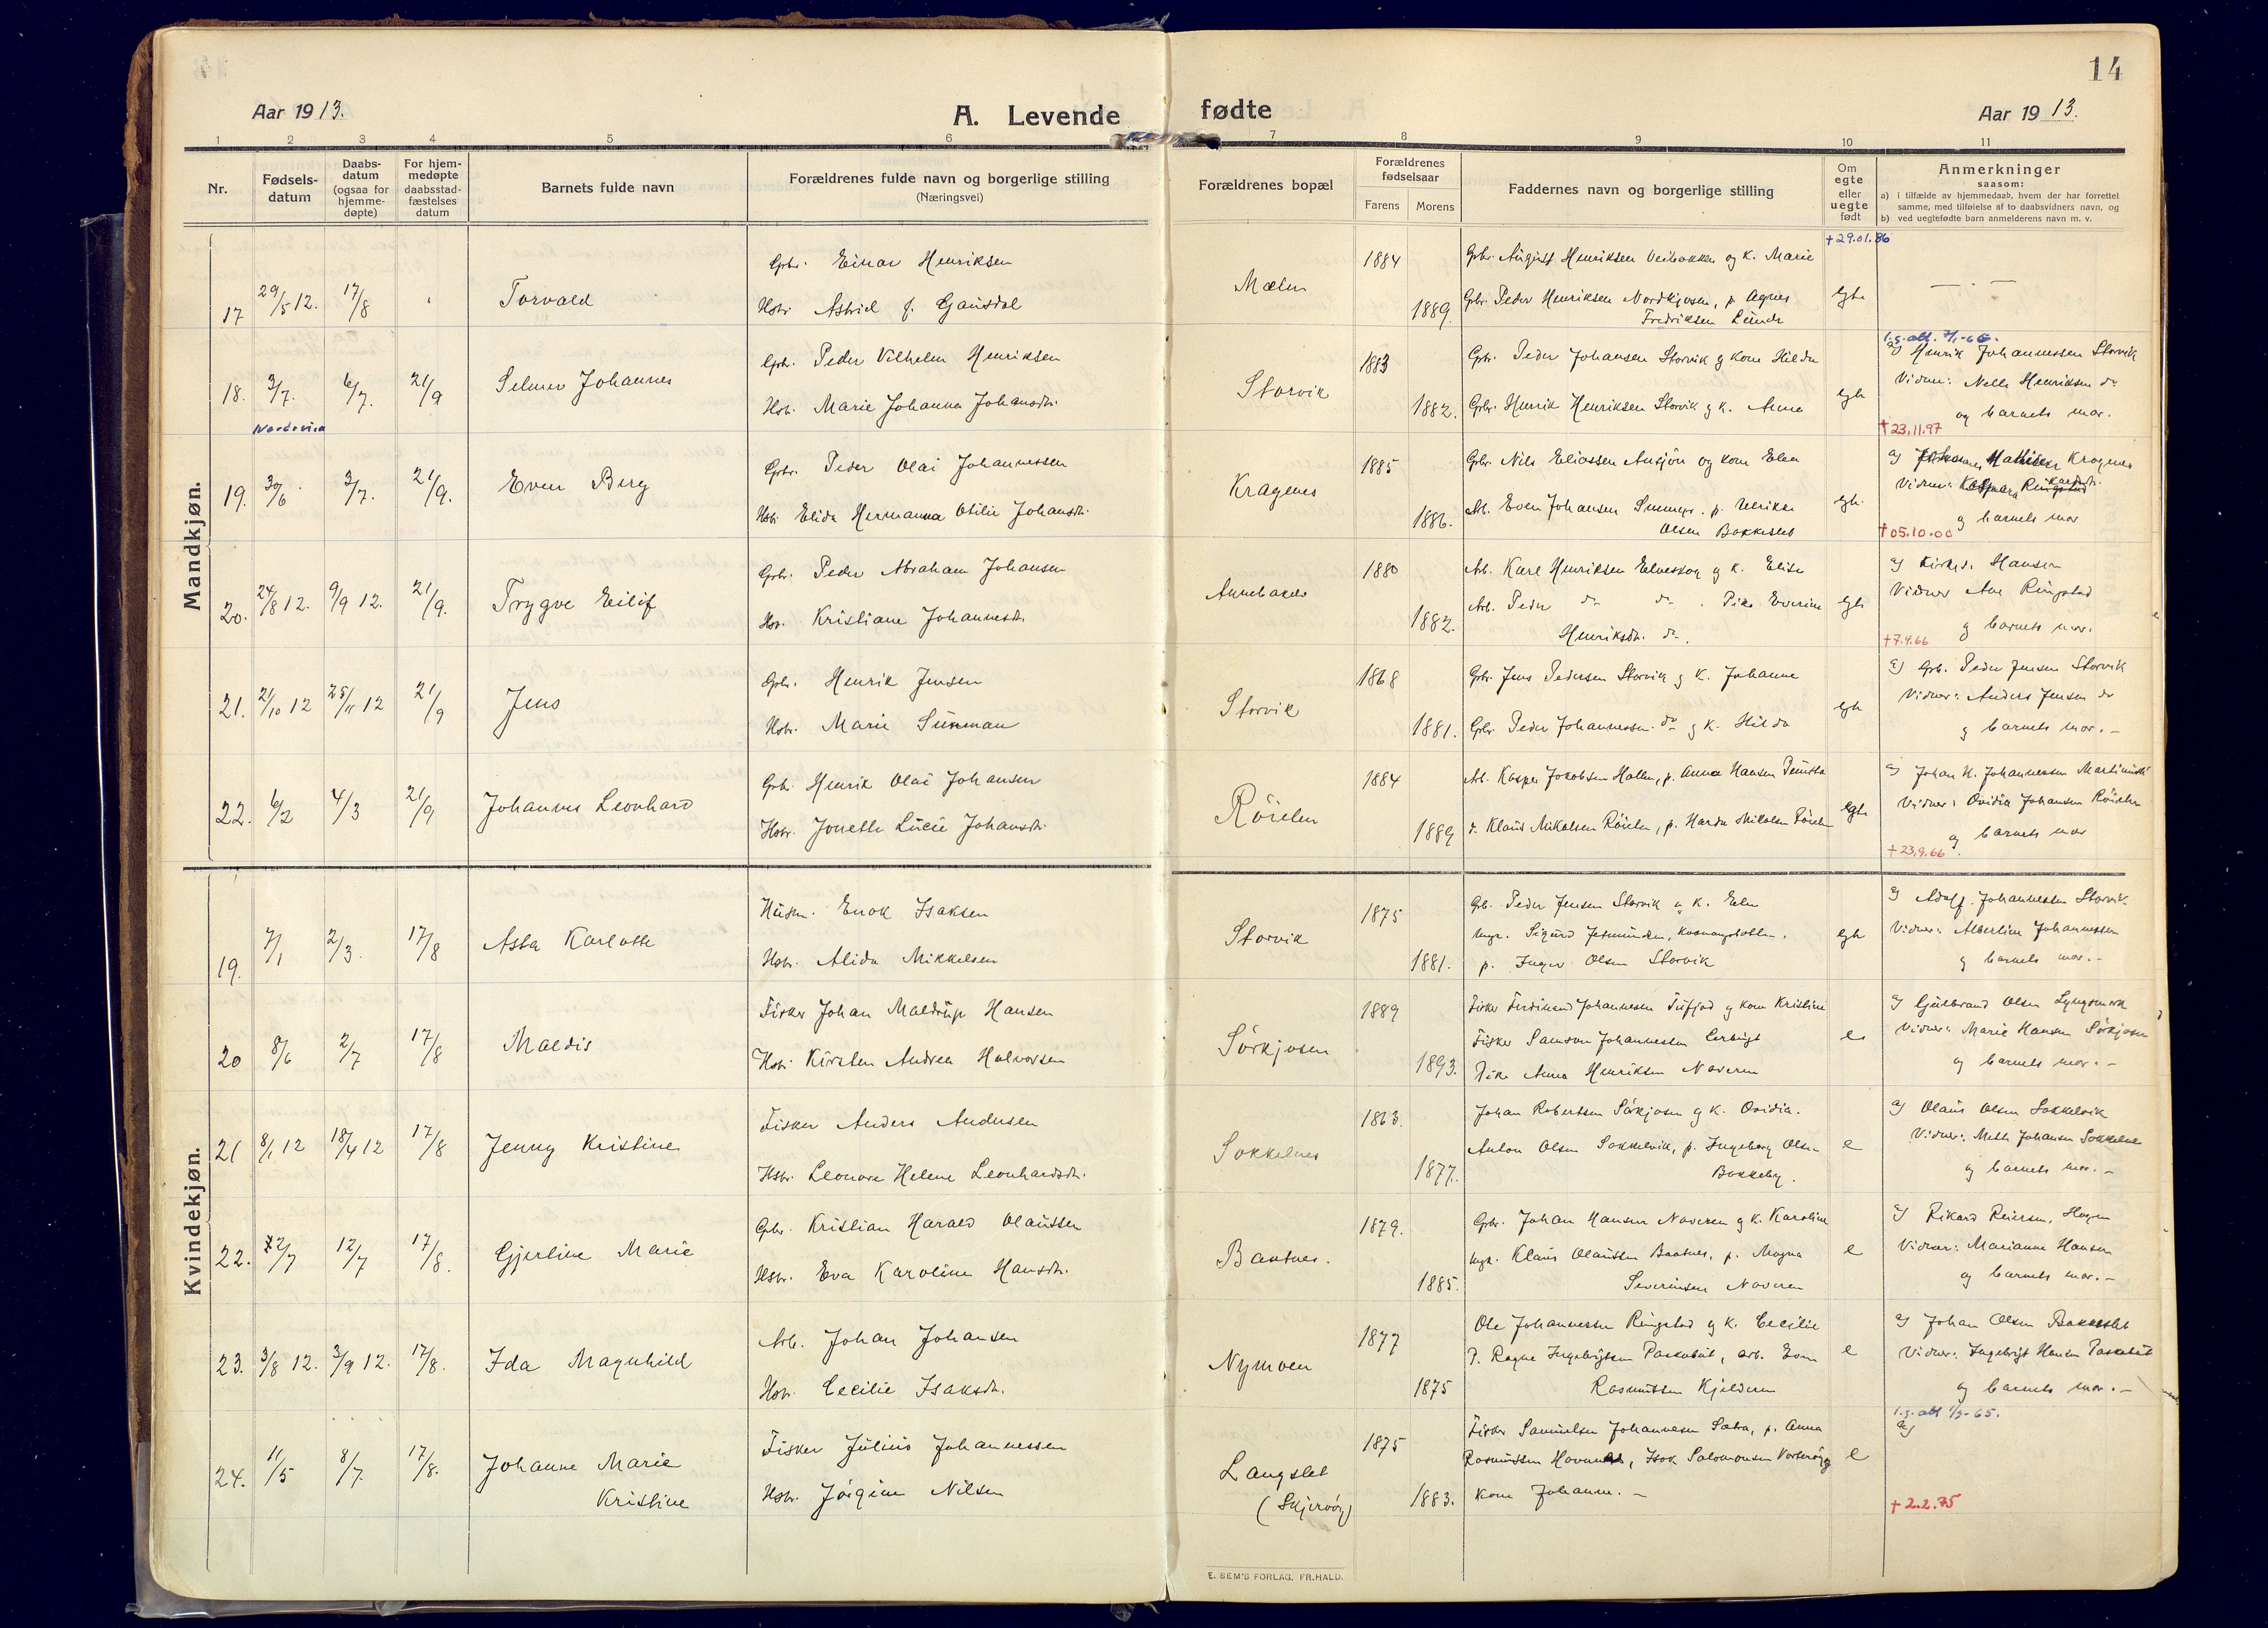 14
Aar 1913.
A. Levende fødte
Aar 1913.
1 2 3 4 5 6 7 8 9 10 11
Nr.
Fødsels-
datum
Daabs-
datum
(ogsaa for
hjemme-
døpte)
For hjem-
medøpte
daabsstad-
fæstelses
datum
Barnets fulde navn
Forældrenes fulde navn og borgerlige stilling
(Næringsvei)
Forældrenes bopæl
Forældrenes
fødselsaar
Farens Morens
Faddernes navn og borgerlige stilling
Om
egte
eller
uegte
født
Anmerkninger
saasom:
a) i tilfælde av hjemmedaab, hvem der har forrettet
samme, med tilføielse af to daabsvidners navn, og
b) ved uegtefødte barn anmelderens navn m. v.
Mandkjøn.
†29.01.86
Gbr. Einar Henriksen 1884 Gbr. August Henriksen og K. Marie
17 29/5 12. 17/8 Torvald Mælen egte
Hstr. Astrid J. Gausdal 1889. Gbr. Peder Henriksen Nordkjosen, p. Agnes
Fredriksen Lunde
I.g. att. 7/1-65.
Gbr. Peder Vilhelm Henriksen 1883 Gbr. Peder Johansen Storvik og kone Hilda a) Henrik Johannessen Storvik
18. 3/7. 6/7. 21/9 Selmer Johannes Storvik egte Vidner: Henriksen do
Hstr. Marie Johanna Johansdtr. 1882. Gbr. Henrik Henriksen Storvik og K. Anna og barnets mor.
†23.11.97
Gbr. Peder Olai Johannessen 1885 Gbr. Nils Eliassen og kone Elen a) Mathisen Kragenes
19. 30/6 3/7. 21/9. Even Berg Kragenes egte Vidner:
Hstr. Elida Hermanna Otilie Johansdtr. 1886. Arb. Even Johansen p. Ulrikke
Olsen Bakkeslet og barnets mor
†05.10.00
Gbr. Peder Abraham Johansen 1880 Arb. Karl Henriksen og K. Elise a) Kirkes. Hansen
20. 24/8 12. 9/9 12. 21/9. Trygve Eilif Annebakk egte Vidner Ane Ringstad
Hstr. Kristiane Johannesdtr. 1882. Arb. Peder do do. Pike Everine
Henriksdtr. do. og barnets mor.
†7.4.66
Gbr. Henrik Jensen 1868 Gbr. Jens Pedersen Storvik og K. Johanne a) Gbr. Peder Jensen Storvik
21. 21/10 12 25/11 12 21/9 Jens Storvik egte Vidner: Anders Jensen do
Hstr. Marie Sunman 1881. Gbr. Peder Johannessen do og K. Hilda og barnets mor.-
Gbr. Henrik Olai Johansen 1884 Arb. Kasper Jakobsen Hallen, p. Anna Hansen a) Johan H. Johannessen
22. 6/2 4/3 21/9 Johannes Leonhard Röielen egte Vidner: Ovidia Johansen Röielen
Hstr. Jonette Lucie Johansdtr. 1889 Klaus Mikalsen Röielen, p. Harda Mikalsen Röielen og barnets mor
†23.9.66
Kvindekjøn.
Husm. Enok Isaksen 1875 Gb. Peder Jensen Storvik og K. Elen a) Adolf Johannessen Storvik.
19. 7/1 2/3. 17/8 Asta Karlotte Storvik Ungk. Sigurd egte Vidner: Albertine Johannessen
Hstr. Alida Mikkelsen 1881. p. Inger Olsen Storvik og barnets mor.-
Fisker Johan Maldrup Hansen 1889 Fisker Ferdinand Johannesen og kone Kristine a) Gulbrand Olsen Lyngsmark
20 8/6 2/7 17/8 Maldis Sörkjosen Fisker Samson Johannessen e Vidner: Marie Hansen Sörkjosen
Hstr. Kirsten Andrea Halvorsen 1893. Pike Anna Henriksen Naveren og barnets mor.-
Fisker Anders Andersen 1863. Johan Robertsen Sörkjosen og K. Ovidia. a) Olaus Olsen Sokkelvik
21 8/1 12 18/4 12 17/8 Jenny Kristine Sokkelnes Anton Olsen Sokkelvik, p. Ingeborg Olsen e Vidner: Mette Johansen Sokkelnes
Hstr. Leonore Helene Leonhardsdtr. 1877. Bakkeby. og barnets mor.-
Gbr. Kristian Harald Olaussen 1879. Gbr. Johan Hansen Naveren og K. Karoline a) Rikard Reiersen, Hagen
22. 2/7 12/7 17/8. Gjertine Marie Bantnes. Ungk. Klaus Olaussen Bantnes, p. Magna e Vidner: Marianne Hansen
Hstr. Eva Karoline Hansdtr. 1885. Severinsen Naveren og barnets mor.-
Arb. Johan Johansen 1877 Ole Johannessen Ringstad og K. Cecilie a) Johan Olsen Bakkeslet
23. 3/8 12. 3/9 12. 17/8. Ida Magnhild Nymoen P. Ragna Ingebrigtsen, arb. Even e Vidner: Ingebrigt Hansen
Hstr. Cecilie Isaksdtr. 1875 Rasmussen Kjelderen og barnets mor.-
I.g. att 1/3-65.
Fisker Julius Johannessen 1875 Fisker Samuelsen Johannesen p. Anna a)
24. 11/5 8/7. 17/8. Johanne Marie Langslet Rasmussen Isak Salomonsen Vorterøy e
Kristine Hstr. Jörgine Nilsen (Skjervöy) 1883. kone Johanne.-
†2.2.75
E. SEM'S FORLAG. FR.HALD.